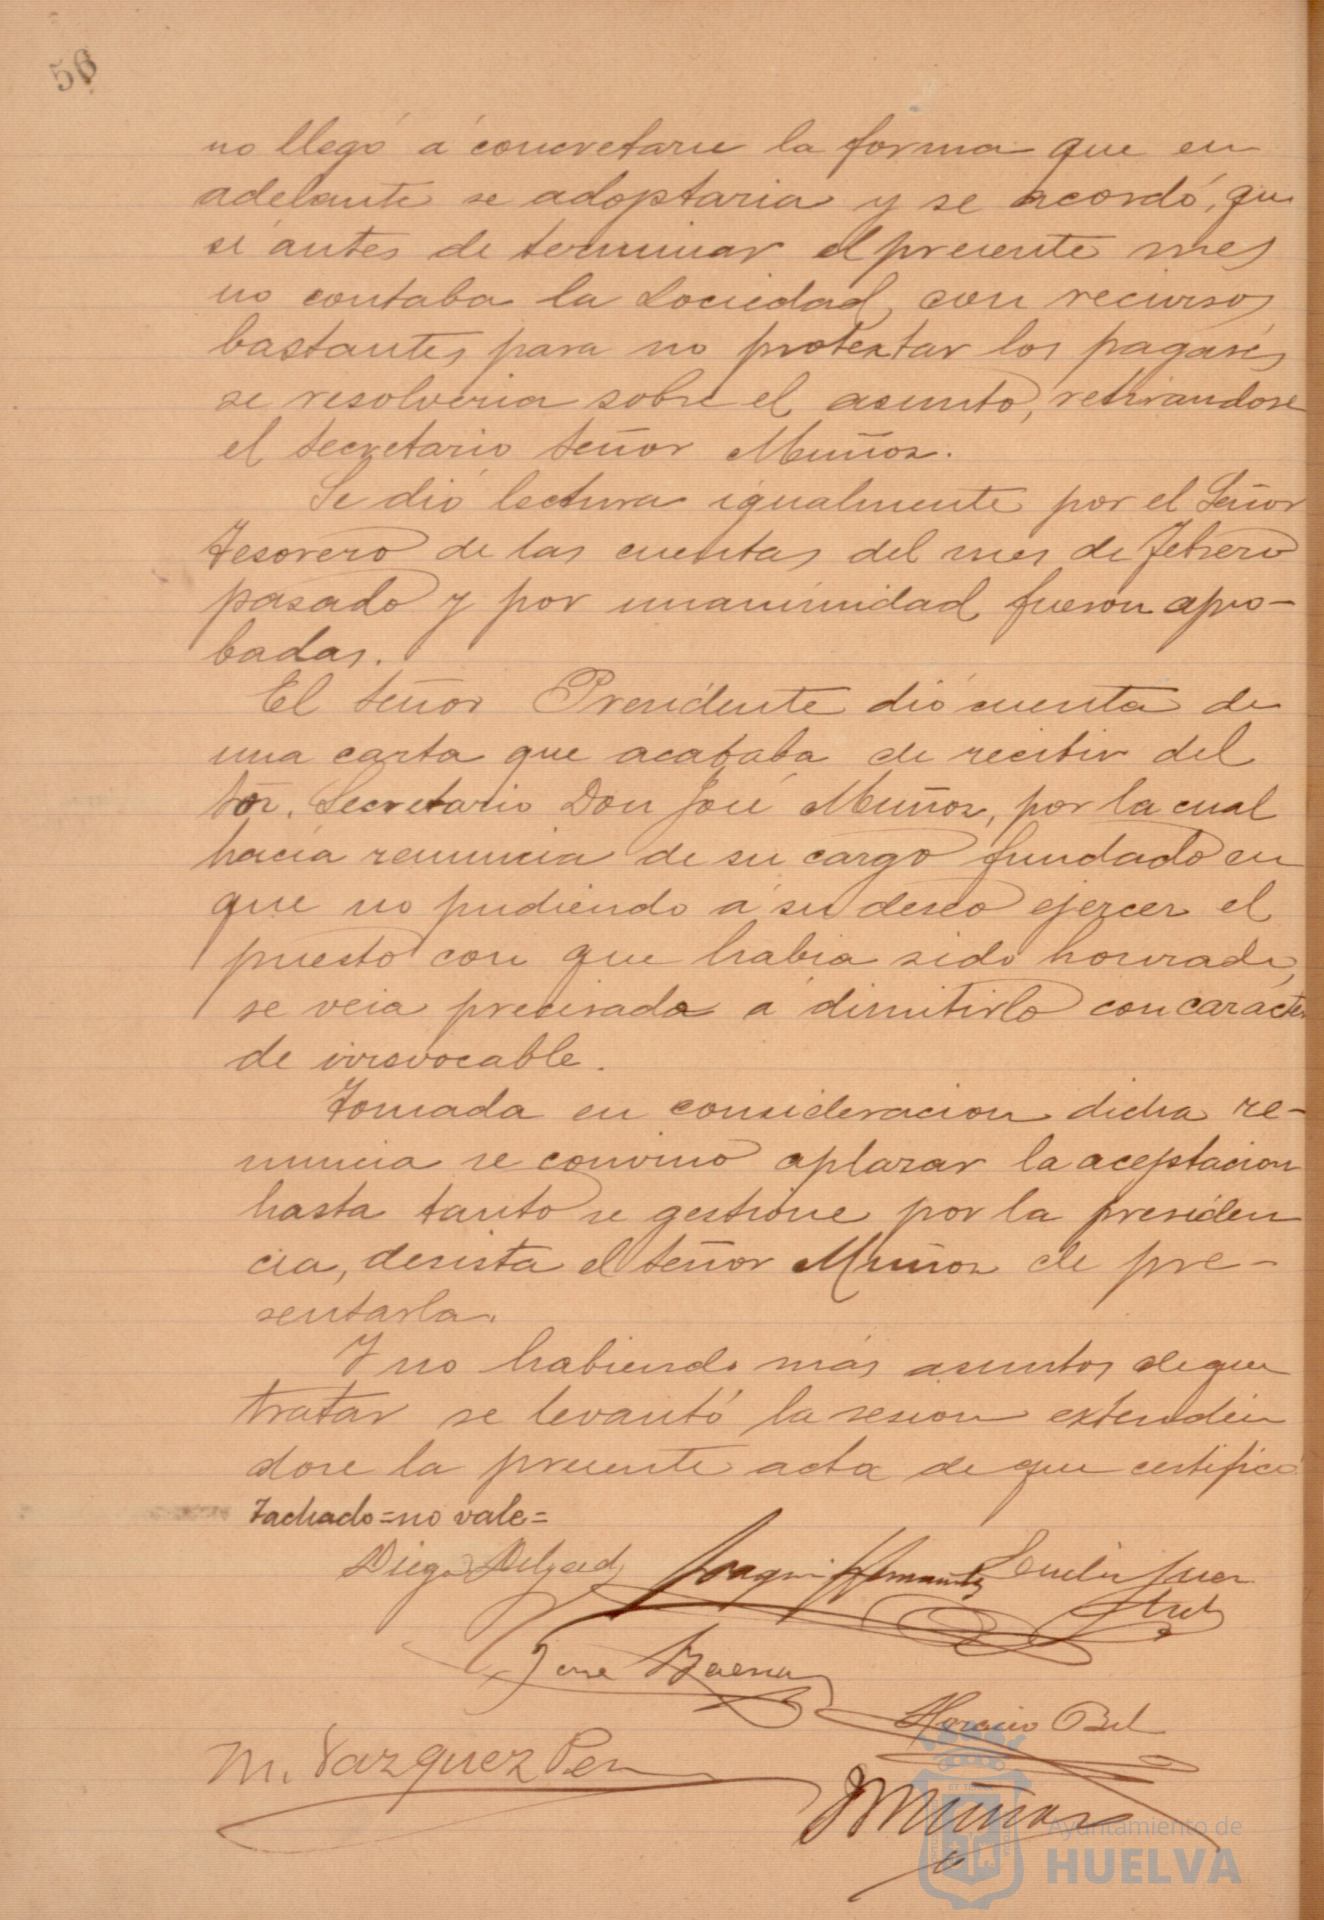 56
no llegó á concretarse la forma que en
adelante se adoptaria y se acordó, que
si antes de terminar el presente mes
no contaba la Sociedad con recursos
bastantes para no protextar los pagarés
se resolveria sobre el asunto, retirandose
el Secretario Señor Muñoz.
Se dió lectura igualmente por el Señor
Tesorero de las cuentas del mes de Febrero
pasado y por unanimidad fueron apro-
badas.
El Señor Presidente dió cuenta de
una carta que acababa de recibir del
Sor. Secretario Don José Muñoz, por la cual
hacia renuncia de su cargo fundado en
que no pudiendo á su deseo ejercer el
puesto con que habia sido honrado,
se veia precisado á dimitirlo con caracter
de irrevocable.
Tomada en consideracion dicha re-
nuncia se convino aplazar la aceptacion
hasta tanto se gestione por la presiden
cia, desista el Señor Muñoz de pre-
sentarla.
Y no habiendo más asuntos de que
tratar se levantó la sesion extendien
dose la presente acta de que certifico
Tachado=no vale=
Diego Delgado Joaquin Hernandez
José Baena
Horacio Bel
M. Vazquez Perez
J Muñoz
Ayuntamiento de
HUELVA